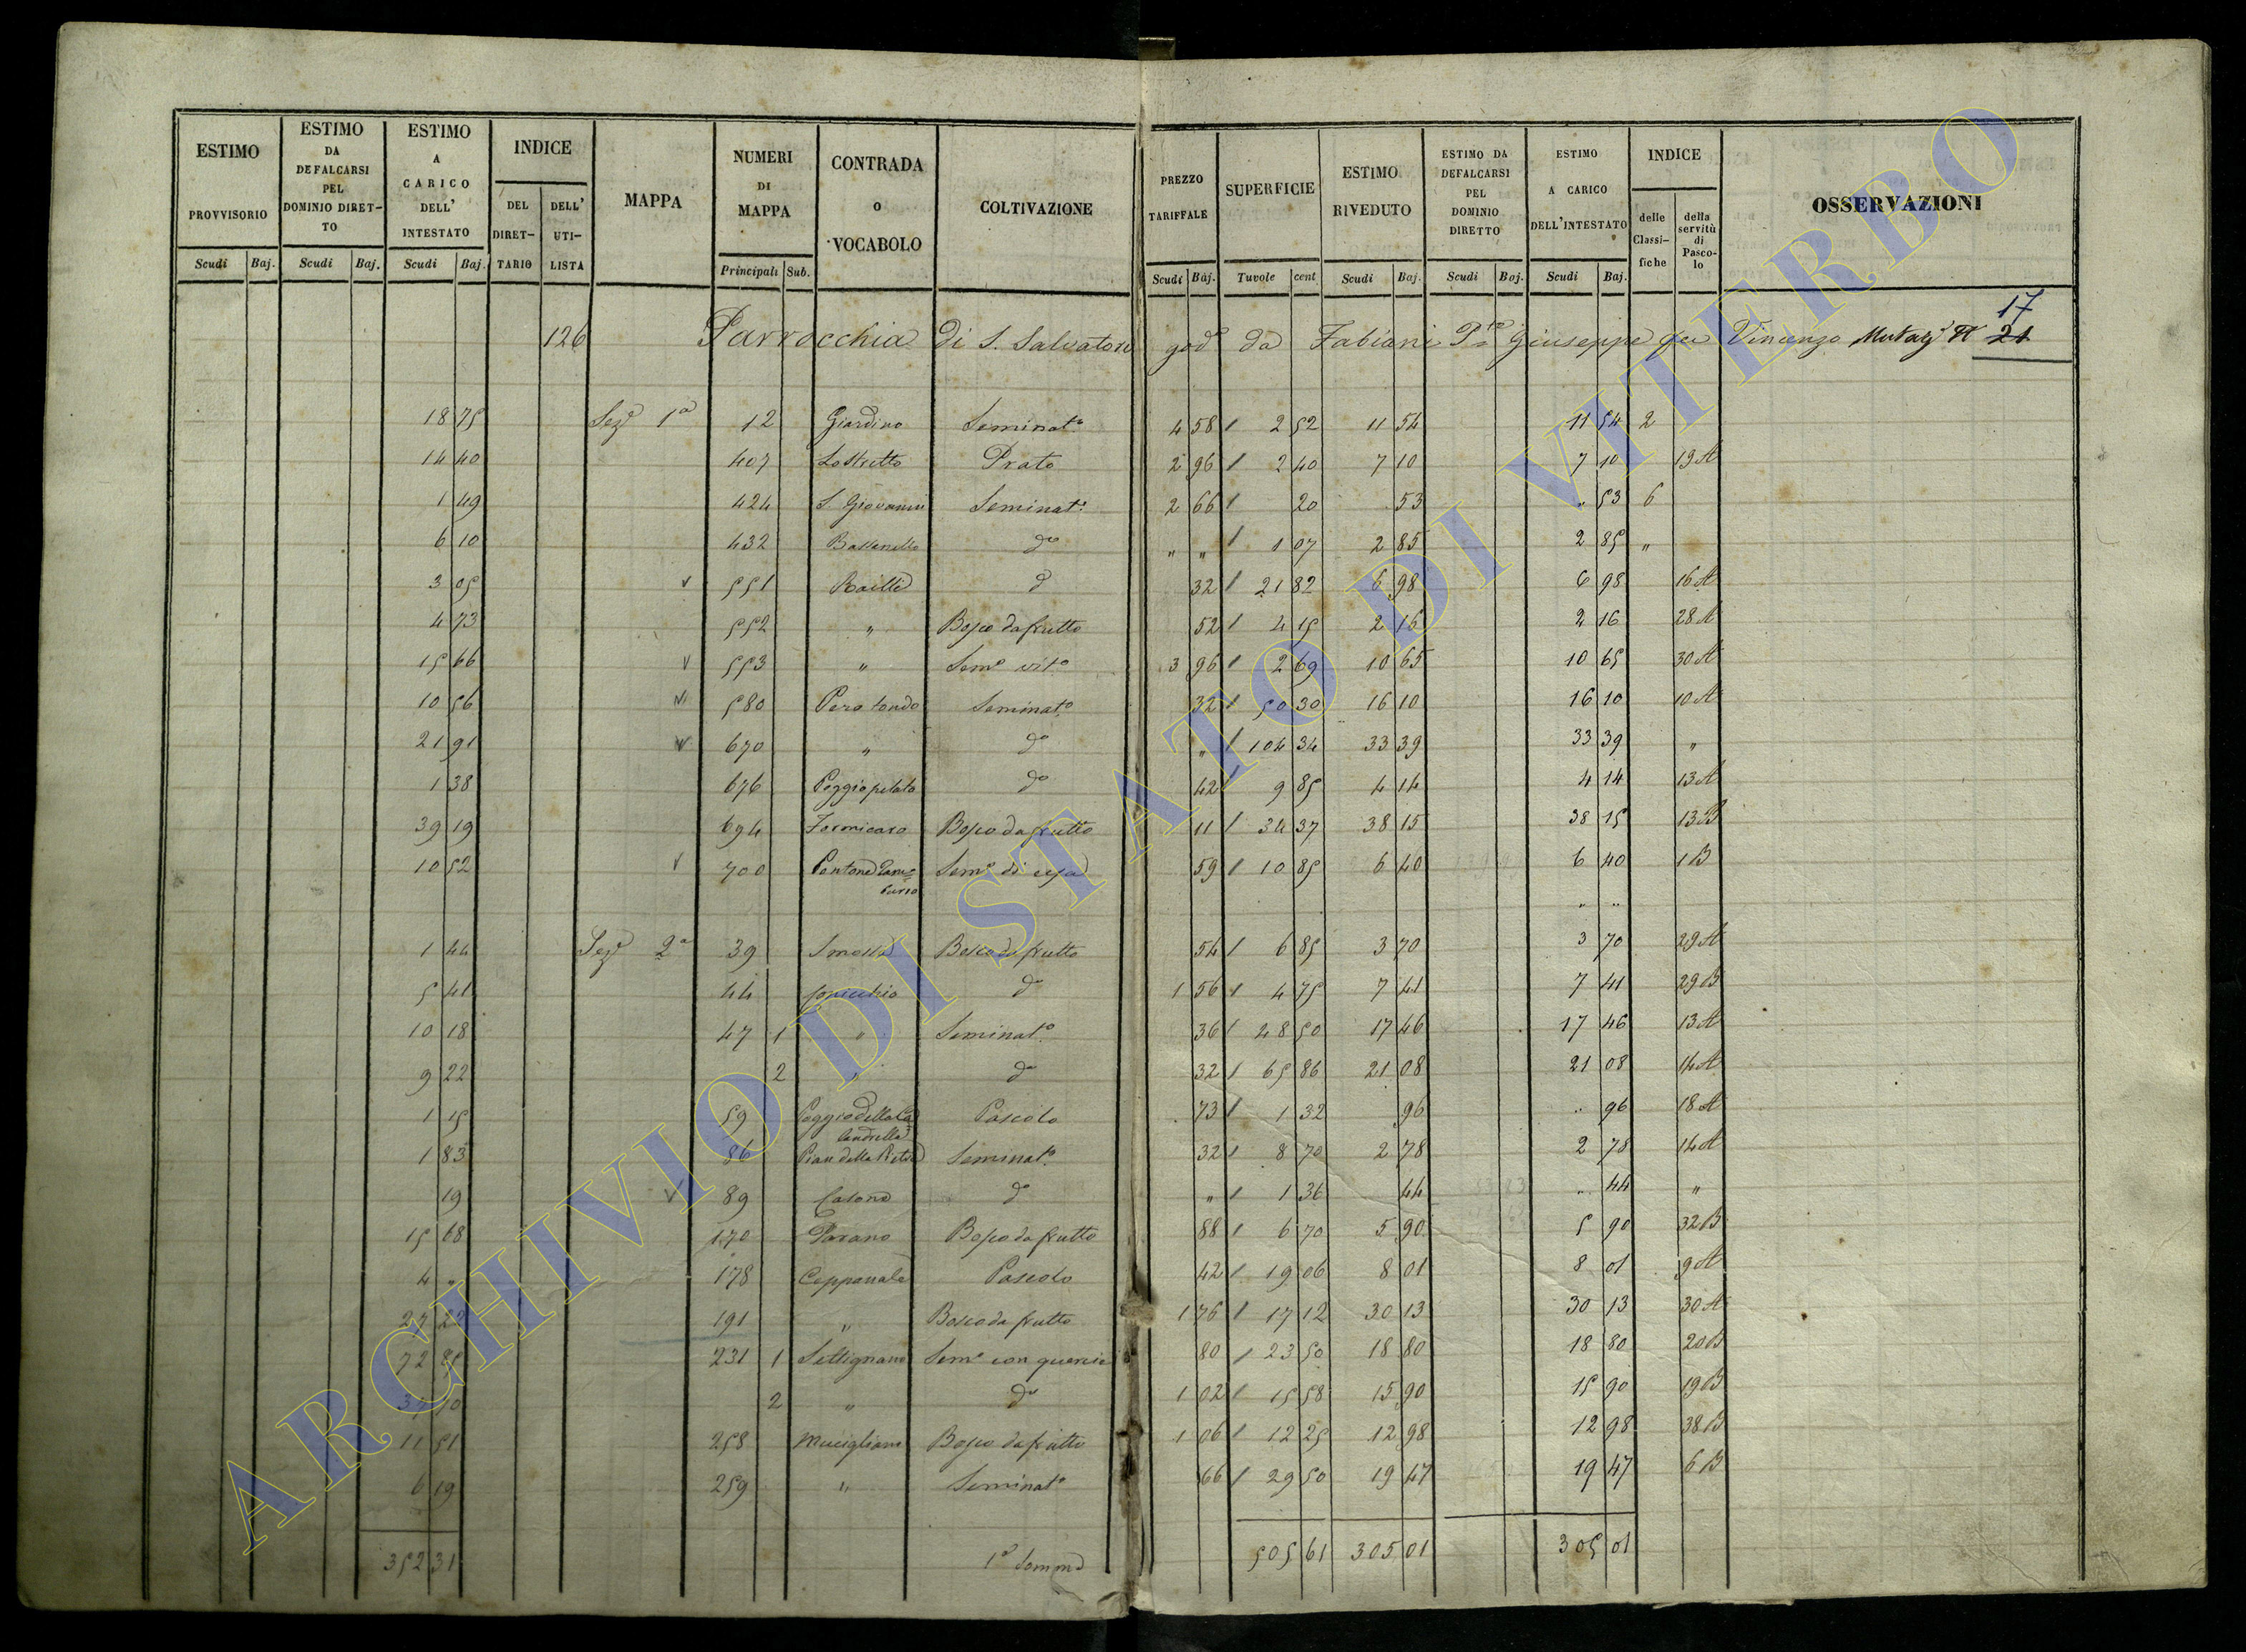 ESTIMO PROVVISORIO Scudi Baj.
ESTIMO DA DEFALCARSI PEL DOMINIO DIRET-TO Scudi Baj.
ESTIMO A CARICO DELL' INTESTATO Scudi Baj.
INDICE DEL DIRET-TARIO DELL' UTI-LISTA
MAPPA
NUMERI DI MAPPA Principali Sub.
CONTRADA O VOCABOLO
COLTIVAZIONE
PREZZO TARIFFALE Scudi Baj.
SUPERFICIE Tavole cent
ESTIMO RIVEDUTO Scudi Baj.
ESTIMO DA DEFALCARSI PEL DOMINIO DIRETTO Scudi Baj.
ESTIMO A CARICO DELL'INTESTATO Scudi Baj.
INDICE delle Classi-fiche della servitù di Pasco-lo
OSSERVAZIONI
17
126 Parrocchia di S. Salvatore god.a da Fabiani Giuseppe fu Vincenzo 21
18 75 Sez.e 1a 12 Giardino Seminat.o 4 58 2 52 11 54 11 54 2
14 40 407 Prato 2 96 2 40 7 10 7 10 19 A
1 49 424 S. Giovanni Seminat.o 2 66 20 53 " 53 6
6 10 432 Bassanello d.o " " 1 07 2 85 2 85 "
3 05 551 d.o 32 21 82 6 98 6 98 16 A
4 73 552 " Bosco da frutto 52 4 15 2 16 2 16 28 A
15 66 553 " Sem.o vit.o 3 96 2 69 10 65 10 65 30 A
10 56 580 Pero tondo Seminat.o 32 50 30 16 10 16 10 10 A
21 91 670 " d.o " 104 34 33 39 33 39 "
1 38 676 Poggio pelato d.o 42 9 85 4 14 4 14 13 A
39 19 694 Formicaro Bosco da frutto 11 34 37 38 15 38 15 13 B
10 52 700 Sem.o di 59 10 85 6 40 6 40 1 B
" "
1 44 Sez.e 2a 39 Bosco da frutto 54 6 85 3 70 3 70 29 A
5 41 44 d.o 1 56 4 75 7 41 7 41 29 B
10 18 47 1 " Seminat.o 36 48 50 17 46 17 46 13 A
9 22 2 " d.o 32 65 86 21 08 21 08 14 A
1 15 59 Poggio della Pascolo 73 1 32 96 " 96 18 A
1 83 86 Pian della Pietra Seminat.o 32 8 70 2 78 2 78 14 A
19 89 Casone d.o " 1 36 44 " 44 "
15 68 170 Parano Bosco da frutto 88 6 70 5 90 5 90 32 B
4 " 178 Cepponale Pascolo 42 19 06 8 01 8 01 9 A
191 " Bosco da frutto 1 76 17 12 30 13 30 13 30 A
72 231 1 Settignano Sem.o con quercie 80 23 50 18 80 18 80 20 B
2 " d.o 1 02 15 58 15 90 15 90 19 B
11 51 258 Mucigliano Bosco da frutto 1 06 12 25 12 98 12 98 38 B
6 19 259 " Seminat.o 66 29 50 19 47 19 47 6 B
352 31 1a Somma 505 61 305 01 305 01
ARCHIVIO DI STATO DI VITERBO